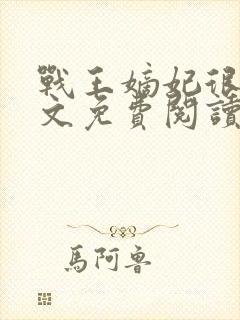 戰王嫡妃很
文免費閱讀
馬阿魯